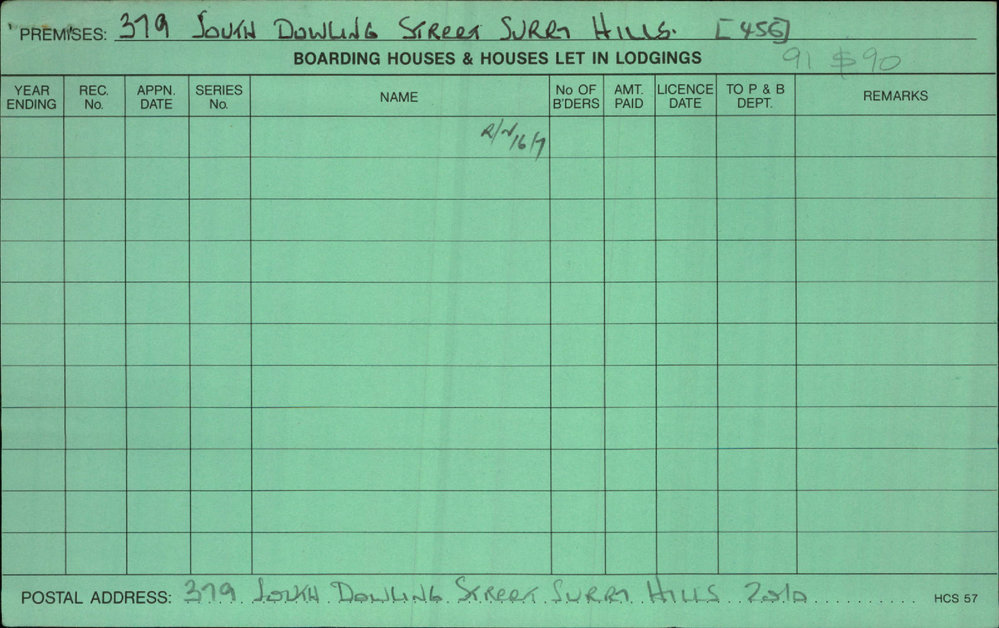 PREMISES: 379 SOUTH DOWLING STREET SURRY HILLS. [456]
BOARDING HOUSES & HOUSES LET IN LODGINGS 91 $90
YEAR ENDING REC. No. APPN. DATE SERIES No. NAME No OF B'DERS AMT. PAID LICENCE DATE TO P & B DEPT. REMARKS
16/7
POSTAL ADDRESS: 379 SOUTH DOWLING STREET SURRY HILLS 2010 HCS 57